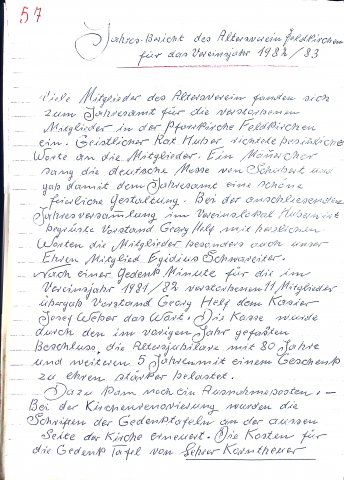 57
Jahres-Bericht des Altersverein Feldkirchen
für das Vereinsjahr 1982/83
Viele Mitglieder des Altersverein fanden sich
zum Jahresamt für die verstorbenen
Mitglieder in der Pfarrkirche Feldkirchen
ein. Geistlicher Rat Huber richtete persönliche
Worte an die Mitglieder. Ein Männerchor
sang die deutsche Messe von Schubert und
gab damit dem Jahresamt eine schöne
feierliche Gestaltung. Bei der anschliesenden
Jahresversammlung im Vereinslokal
begrüste Vorstand Georg Helf mit herzlichen
Worten die Mitglieder besonders auch unser
Ehren Mitglied Egidius Schwaiger.
Nach einer Gedenk Minute für die im
Vereinsjahr 1981/82 verstorbenen 11 Mitglieder
übergab Vorstand Georg Helf dem Kasier
Josef Weber das Wort. Die Kasse wurde
durch den im vorigem Jahr gefasten
Beschluss, die Altersjubilare mit 80 Jahre
und weiteren 5 Jahren mit einem Geschenk
zu ehren stärker belastet.
Dazu kam noch ein Ausnahmeposten. –
Bei der Kirchenrenovierung wurden die
Schriften der Gedenktafeln an der aussen
Seite der Kirche erneuert. Die Kosten für
die Gedenk Tafel von